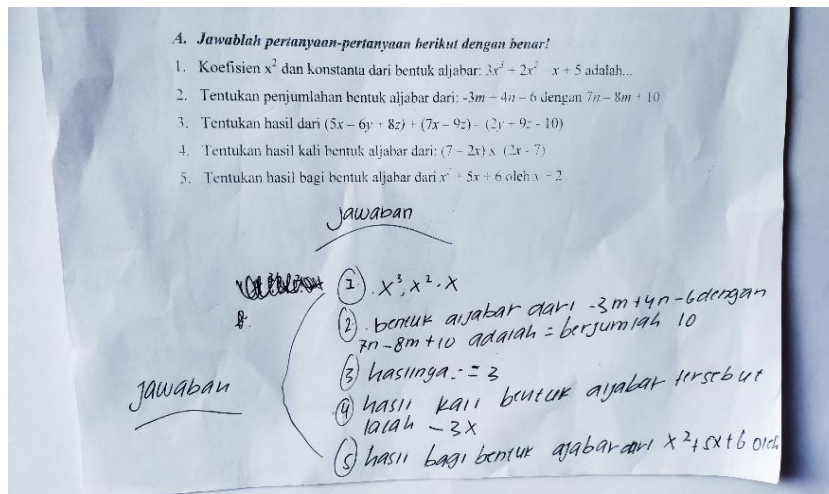 A. Jawablah pertanyaan-pertanyaan berikut dengan benar!
1. Koefisien x² dan konstanta dari bentuk aljabar: 3x³ + 2x² - x + 5 adalah...
2. Tentukan penjumlahan bentuk aljabar dari: -3m - 4n - 6 dengan 7n - 8m + 10
3. Tentukan hasil dari (5x - 6y + 8z) + (7x - 9z) - (2y + 9z - 10)
4. Tentukan hasil kali bentuk aljabar dari: (7 - 2x) x (2x - 7)
5. Tentukan hasil bagi bentuk aljabar dari x² + 5x + 6 oleh x + 2
Jawaban
1. x³, x², x
2. bentuk aljabar dari -3m+4n-6 dengan
7n-8m+10 adalah = berjumlah 10
3 haslinga = 3
Jawaban
4 hasil kali bentuk aljabar tersebut
ialah -3x
5 hasil bagi bentuk ajabar dari x²+5x+6 oleh